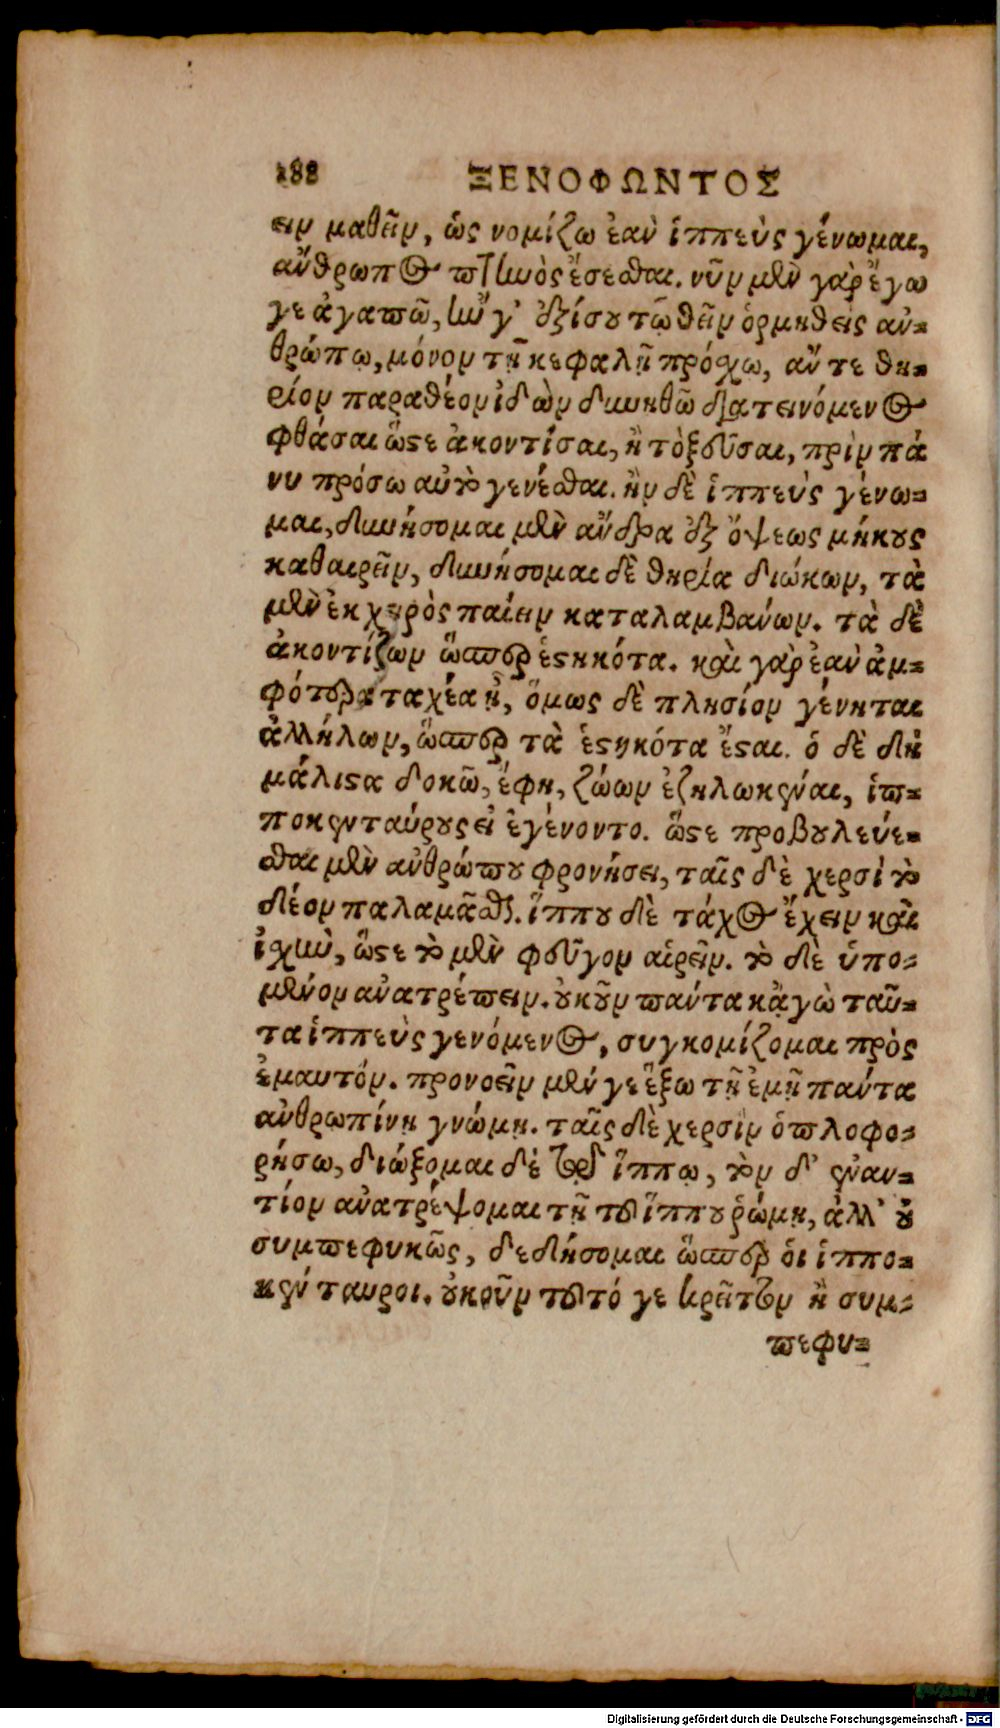 288 ΞΕΝΟΦΩΝΤΟΣ
ειν μαθεῖν, ὡς νομίζω ἐὰν ἱππεὺς γένωμαι,
ἄνθρωπος πτηνὸς ἔσεσθαι. νῦν μὲν γὰρ ἔγω
γε ἀγαπῶ, ἢν γ᾽ ἐξίσου τῷ θεῖν ὁρμηθεὶς ἀν-
θρώπῳ, μόνον τῇ κεφαλῇ πρόσχω, ἄν τε θη-
ρίον παραθέον ἰδὼν δυνηθῶ διατεινόμενος
φθάσαι ὥστε ἀκοντίσαι, ἢ τὸξεῦσαι, πρὶν πά
νυ πρόσω αὐτὸ γενέσθαι. ἢν δὲ ἱππεὺς γένω-
μαι, δυνήσομαι μὲν ἄνδρα ἐξ ὄψεως μήκους
καθαιρεῖν, δυνήσομαι δὲ θηρία διώκων, τὰ
μὲν ἐκ χειρὸς παίειν καταλαμβάνων. τὰ δὲ
ἀκοντίζων ὥσπερ ἑστηκότα. καὶ γὰρ ἐὰν ἀμ-
φότερα ταχέα ᾖ, ὅμως δὲ πλησίον γένηται
ἀλλήλων, ὥσπερ τὰ ἑστηκότα ἔσται. ὁ δὲ δὴ
μάλιστα δοκῶ, ἔφη, ζώων ἐζηλωκέναι, ἱπ-
ποκενταύρους εἰ ἐγένοντο. ὥστε προβουλεύε-
σθαι μὲν ἀνθρώπου φρονήσει, ταῖς δὲ χερσὶ τὸ
δέον παλαμᾶσθαι. ἵππου δὲ τάχος ἔχειν καὶ
ἰσχὺν, ὥστε τὸ μὲν φεῦγον αἱρεῖν. τὸ δὲ ὑπο-
μένον ἀνατρέπειν. οὐκοῦν πάντα κἀγὼ ταῦ-
τα ἱππεὺς γενόμενος, συγκομίζομαι πρὸς
ἐμαυτόν. προνοεῖν μέν γε ἕξω τῇ ἐμῇ πάντα
ἀνθρωπίνῃ γνώμῃ. ταῖς δὲ χερσὶν ὁπλοφο-
ρήσω, διώξομαι δὲ τῷ ἵππῳ, τὸν δ᾽ ἐναν-
τίον ἀνατρέψομαι τῇ τοῦ ἵππου ῥώμῃ, ἀλλ᾽ οὐ
συμπεφυκῶς, δεδήσομαι ὥσπερ ὁι ἱππο-
κένταυροι. οὐκοῦν τοῦτό γε κρεῖττον ἢ συμ-
πεφυ-
Digitalisierung gefördert durch die Deutsche Forschungsgemeinschaft - DFG